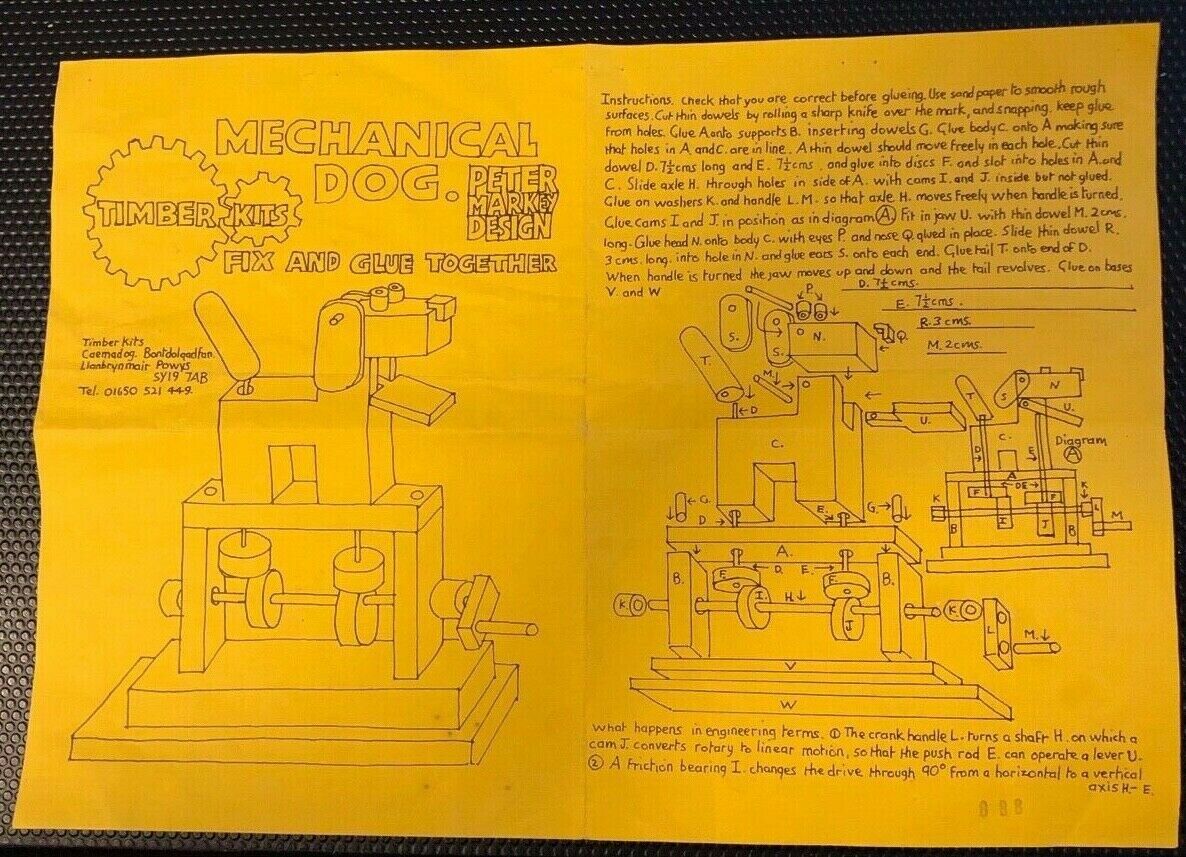 MECHANICAL
DOG.
PETER
MARKEY
DESIGN
TIMBER KITS
FIX AND GLUE TOGETHER
Timber Kits
Caemadog. Bontdolgadfan.
Llanbrynmair Powys
SY19 7AB
Tel. 01650 521 449.
Instructions. Check that you are correct before glueing. Use sand paper to smooth rough
surfaces. Cut thin dowels by rolling a sharp knife over the mark, and snapping. keep glue
from holes. Glue A onto supports B. inserting dowels G. Glue body C. onto A making sure
that holes in A and C. are in line. A thin dowel should move freely in each hole. Cut thin
dowel D. 7½cms long and E. 7½cms. and glue into discs F. and slot into holes in A. and
C. Slide axle H. through holes in side of A. with cams I. and J. inside but not glued.
Glue on washers K. and handle L. M. so that axle H. moves freely when handle is turned.
Glue cams I and J. in position as in diagram Ⓐ Fit in jaw U. with thin dowel M. 2cms.
long. Glue head N. onto body C. with eyes P. and nose Q. glued in place. Slide thin dowel R.
3cms. long. into hole in N. and glue ears S. onto each end. Glue tail T. onto end of D.
When handle is turned the jaw moves up and down and the tail revolves. Glue on bases
V. and W
D. 7½cms.
E. 7½cms.
R. 3cms.
M. 2cms.
P.
S.
S.
N.
Q.
T.
M.
D
U.
C.
G.
D
E.
G.
A.
B.
F.
D.
E.
F.
B.
K
I
H.
J
K
L
M.
V
W
T
S
N
U.
C.
D
E
Diagram
Ⓐ
A
F
DE
F
K
K
B
I
J
B
L
M
What happens in engineering terms. ① The crank handle L. turns a shaft H. on which a
cam J. converts rotary to linear motion, so that the push rod E. can operate a lever U.
② A friction bearing I. changes the drive through 90° from a horizontal to a vertical
axis H.- E.